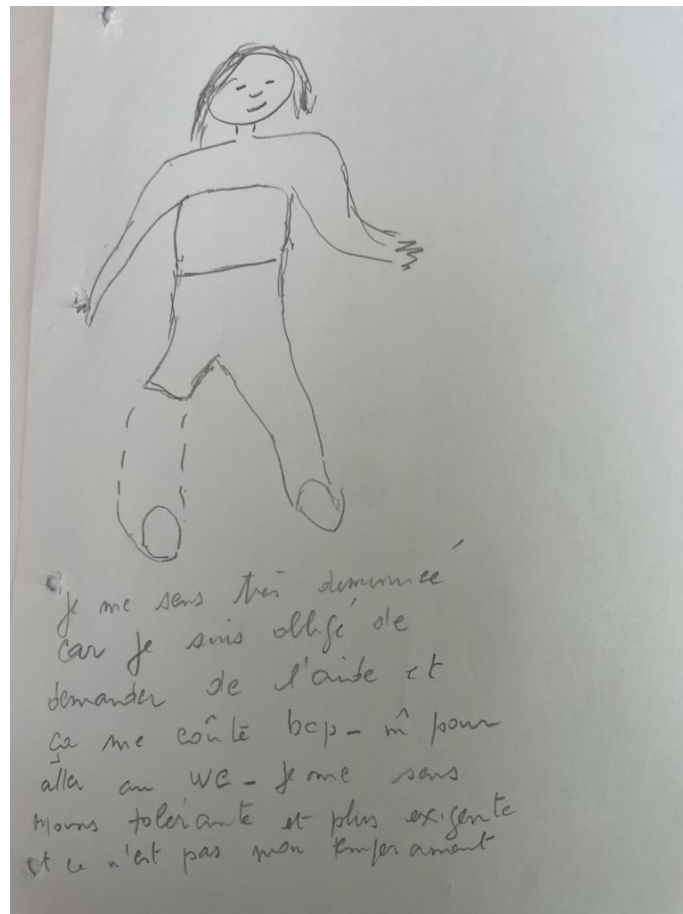 Je me sens très diminuée
car je suis obligé de
demander de l'aide et
ça me coûte bcp - m̂ pour
aller au WC - Je me sens
moins tolérante et plus exigente
et ce n'est pas mon temperament